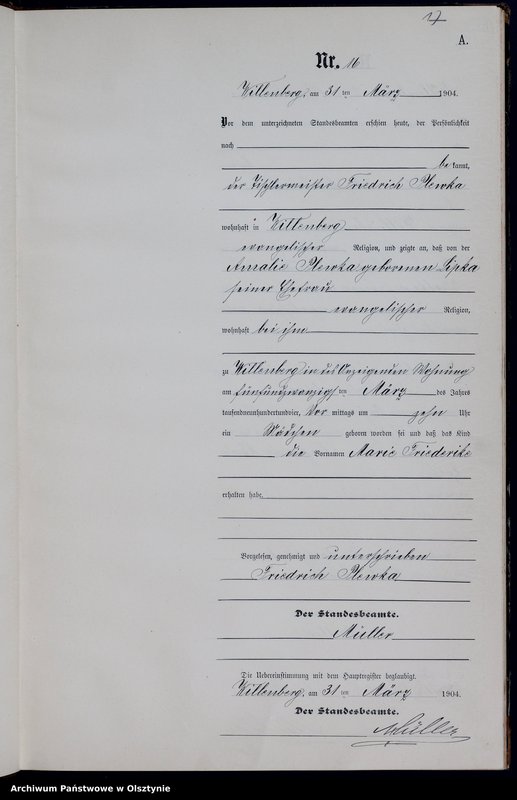 17
A.
Nr. 16
Willenberg, am 31 ten März 1904.
Vor dem unterzeichneten Standesbeamten erschien heute, der Persönlichkeit
nach
be kannt,
der Tischlermeister Friedrich Plewka
wohnhaft in Willenberg
evangelischer Religion, und zeigte an, daß von der
Amalie Plewka geborenen Lipka
seiner Ehefrau
evangelischer Religion,
wohnhaft bei ihm
zu Willenberg in des Anzeigenden Wohnung
am fünfundzwanzigs ten März des Jahres
tausendneunhundertundvier, Vor mittags um zehn Uhr
ein Mädchen geboren worden sei und daß das Kind
die Vornamen Marie Friederike
erhalten habe.
Vorgelesen, genehmigt und unterschrieben
Friedrich Plewka
Der Standesbeamte.
Müller
Die Uebereinstimmung mit dem Hauptregister beglaubigt.
Willenberg, am 31 ten März 1904.
Der Standesbeamte.
Müller
Archiwum Państwowe w Olsztynie